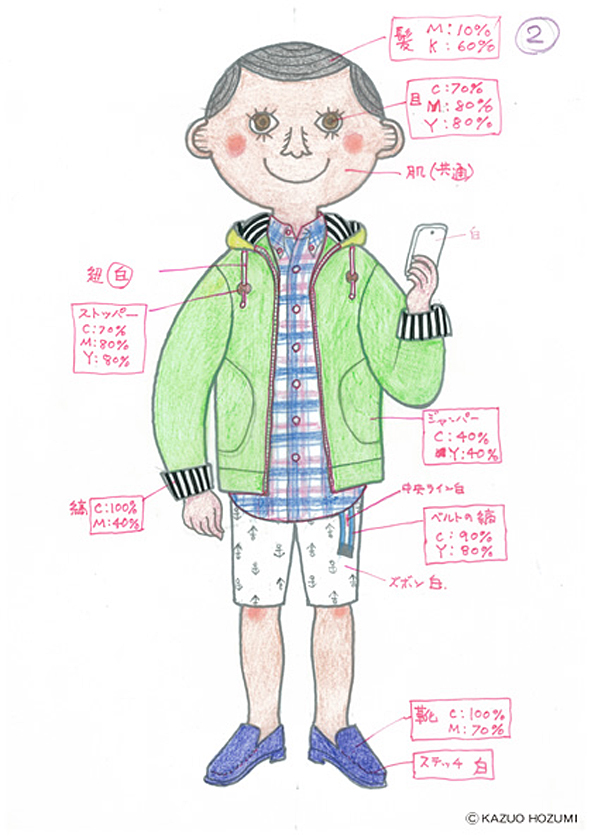 髪 M:10%
K:60%
2
目 C:70%
M:80%
Y:80%
肌(共通)
白
紐 白
ストッパー
C:70%
M:80%
Y:80%
ジャンパー
C:40%
Y:40%
縞 C:100%
M:40%
中央ライン白
ベルトの縞
C:90%
Y:80%
ズボン白.
靴 C:100%
M:70%
ステッチ 白
©KAZUO HOZUMI